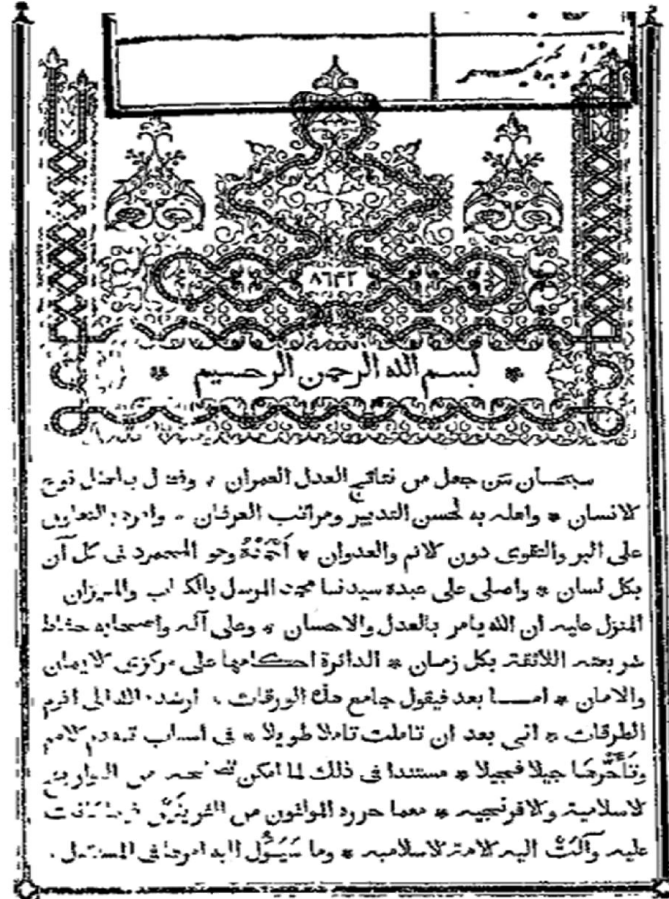 ٨٦٤٢
* بسم الله الرحمن الرحيم *
سبحان من جعل من نتائج العدل العمران * وفضل نوع
الانسان * واهله به لحسن التدبير ومراتب العرفان * وامره بالتعاون
على البر والتقوى دون الاثم والعدوان * أَحْمَدُهُ وهو المحمود فى كل آن
بكل لسان * واصلى على عبده سيدنا محمد المرسل بالكتاب والميزان
المنزل عليه ان الله يامر بالعدل والاحسان * وعلى آله واصحابه حفاظ
شريعته اللائقة بكل زمان * الدائرة احكامها على مركزى الايمان
والامان * امـــا بعد فيقول جامع هذه الورقات * ارشده الله الى اقوم
الطرقات * انى بعد ان تاملت تاملا طويلا * فى اسباب تقدم الامم
وتَأَخُّرِهَا جيلا فجيلا * مستندا فى ذلك لما امكن تصفحه من التواريخ
الاسلامية والافرنجيه * معما حرره المولفون من الفريقين فيما كانت
عليه وآلَتْ اليه الامة الاسلاميه * وما سَيَؤُل اليه امرها فى المستقبل *